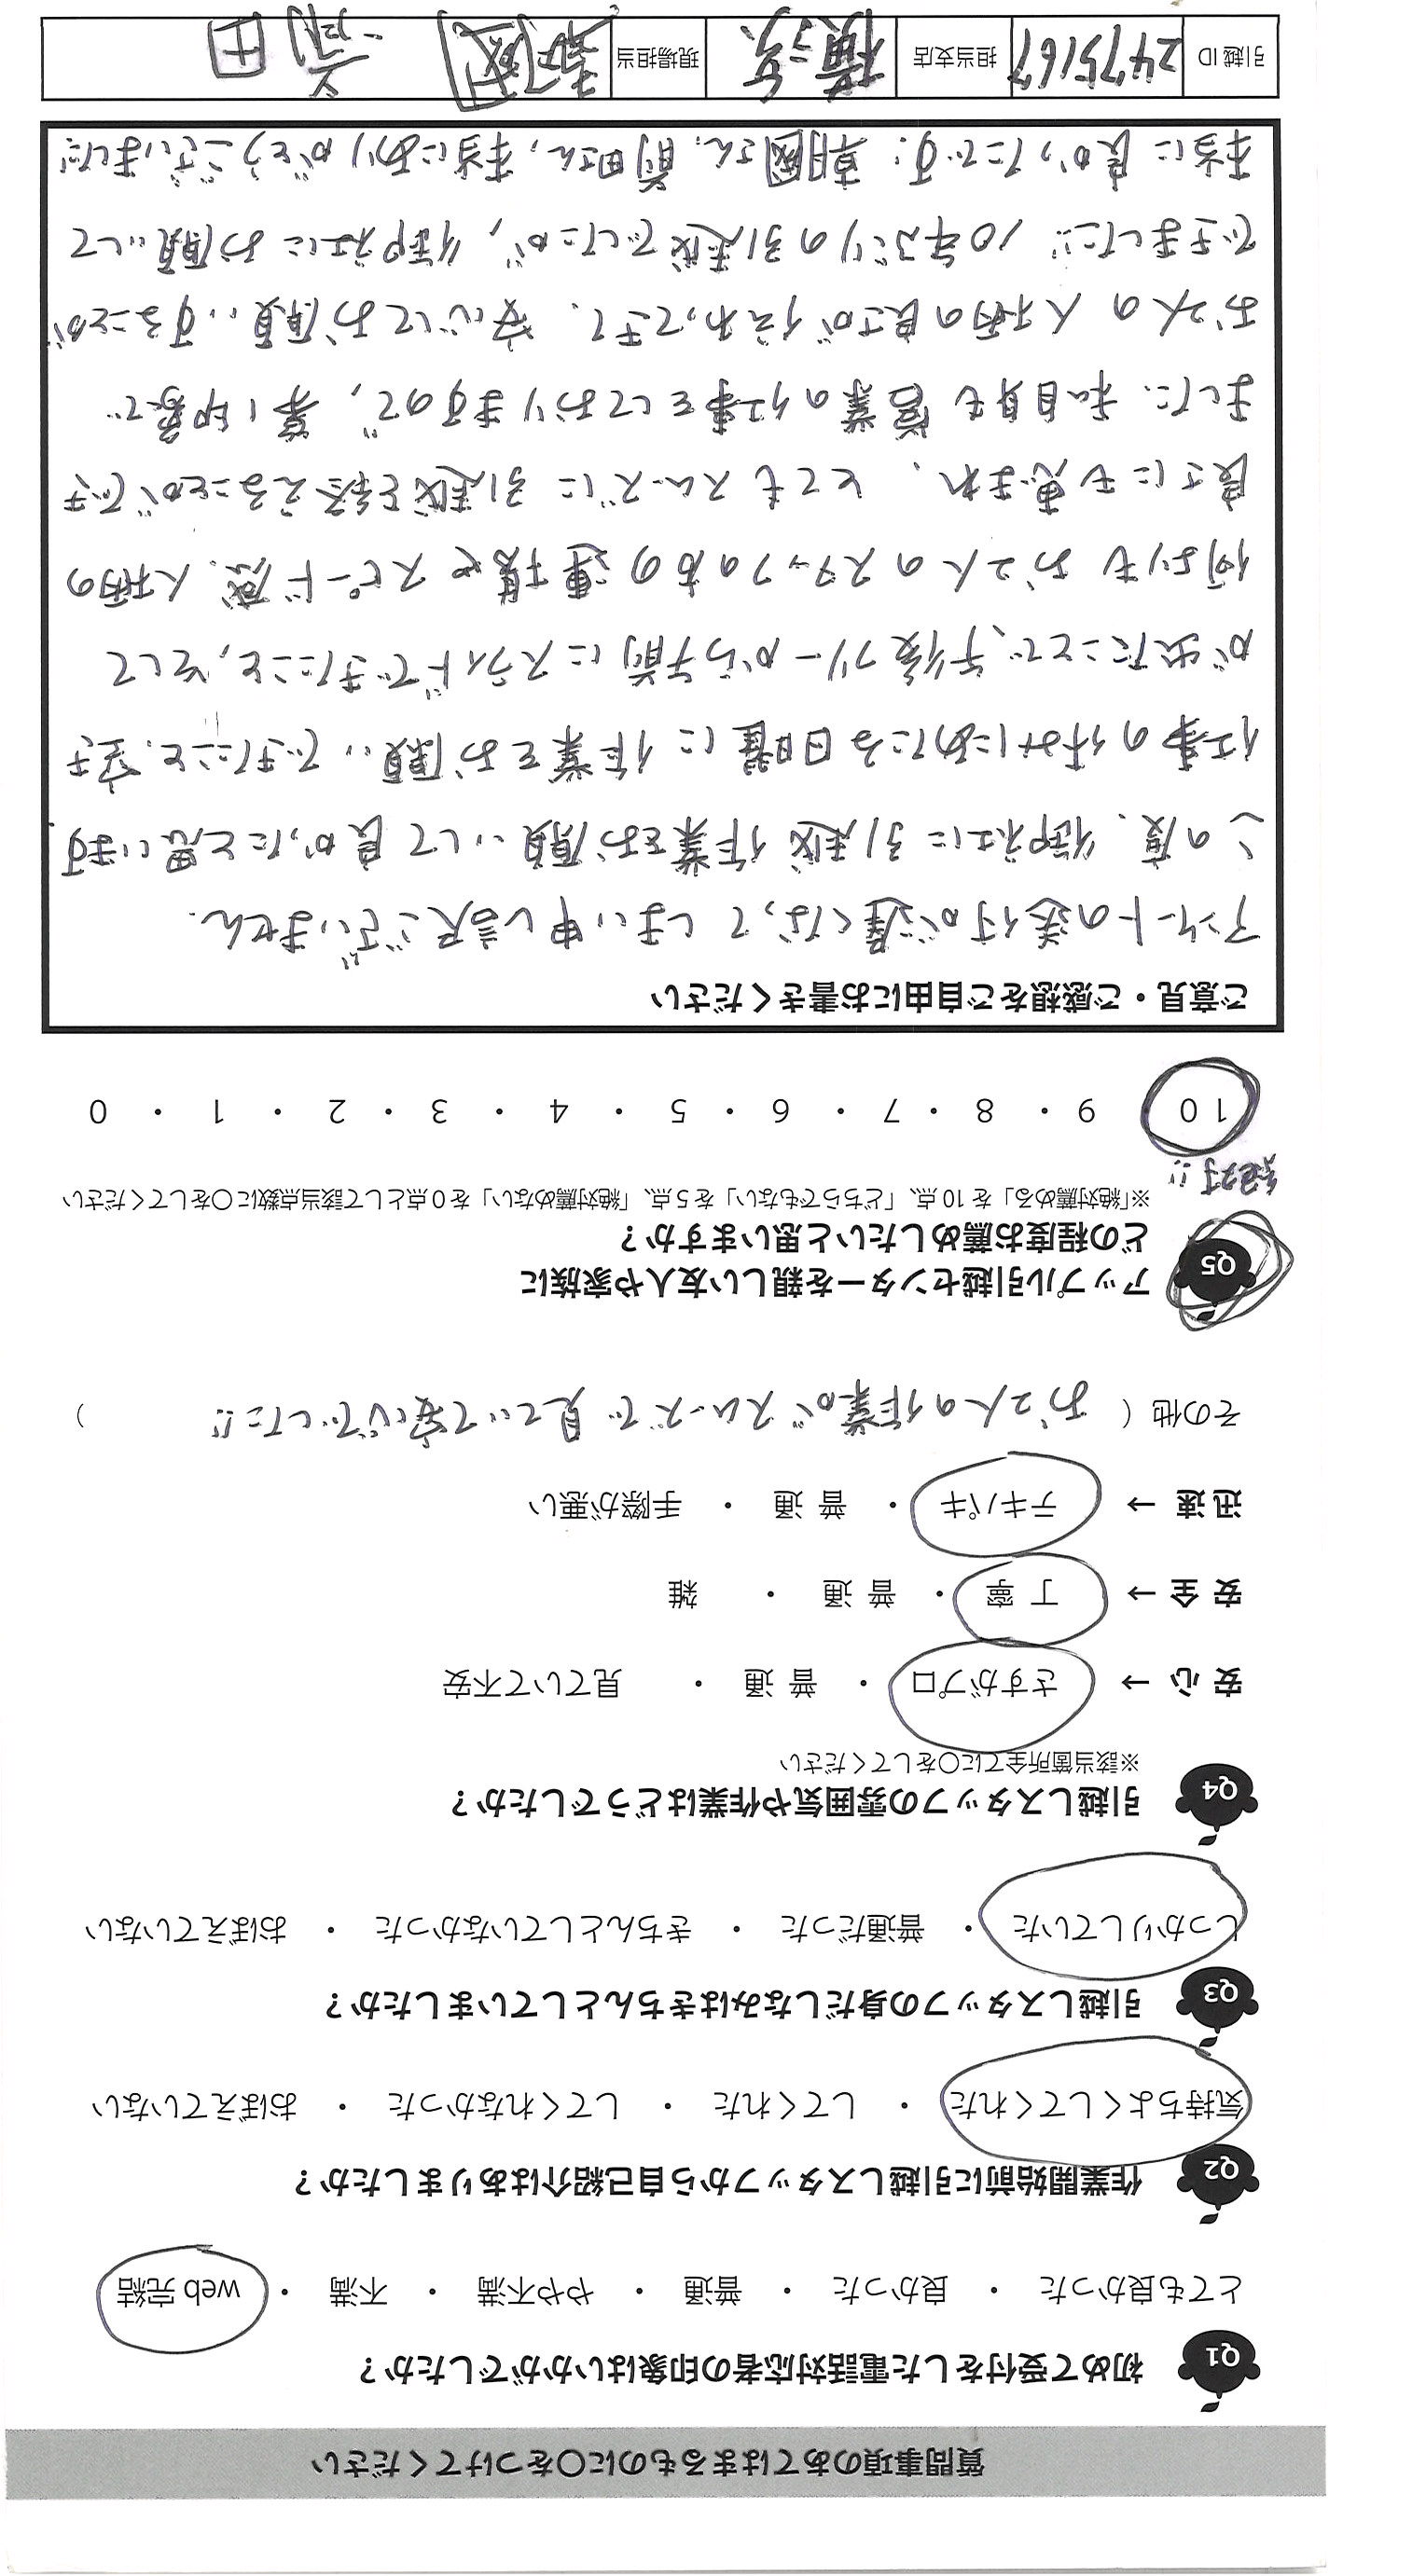 質問事項のあてはまるものに○をつけてください
Q1 初めて受付をした電話対応者の印象はいかがでしたか？
とても良かった ・ 良かった ・ 普通 ・ やや不満 ・ 不満 ・ web 完結
Q2 作業開始前に引越しスタッフから自己紹介はありましたか？
気持ちよくしてくれた ・ してくれた ・ してくれなかった ・ おぼえていない
Q3 引越しスタッフの身だしなみはきちんとしていましたか？
しっかりしていた ・ 普通だった ・ きちんとしていなかった ・ おぼえていない
Q4 引越しスタッフの雰囲気や作業はどうでしたか？
※該当箇所全てに○をしてください
安 心 → さすがプロ ・ 普 通 ・ 見ていて不安
安 全 → 丁 寧 ・ 普 通 ・ 雑
迅 速 → テキパキ ・ 普 通 ・ 手際が悪い
その他（ お2人の作業がスムーズで見ていて安心でした!! ）
Q5 アップル引越センターを親しい友人や家族に
どの程度お薦めしたいと思いますか？
※「絶対薦める」を 10 点、「どちらでもない」を 5 点、「絶対薦めない」を 0 点として該当点数に○をしてください
絶対!!
10 ・ 9 ・ 8 ・ 7 ・ 6 ・ 5 ・ 4 ・ 3 ・ 2 ・ 1 ・ 0
ご意見・ご感想をご自由にお書きください
アンケートの送付が遅くなってしまい申し訳ございません.
この度、御社に引越作業をお願いして良かったと思います.
仕事の休みにあたる日曜に作業をお願いできたこと、空き
が出たことで、午後フリーから午前にスライドできたこと, そして
何よりもお2人のスタッフの方の運搬やスピード感、人柄の
良さにも恵まれ、とてもスムーズに引越を終えることができ
ました. 私自身も営業の仕事をしておりますので, 第1印象で
お2人の人柄の良さが伝わってきて、安心してお願いすることが
できました!! 10年ぶりの引越でしたが, 御社にお願いして
本当に良かったです! 朝國さん, 前田さん, 本当にありがとうございました!
引越 ID 2475167 担当支店 横浜 現場担当 朝國 前田